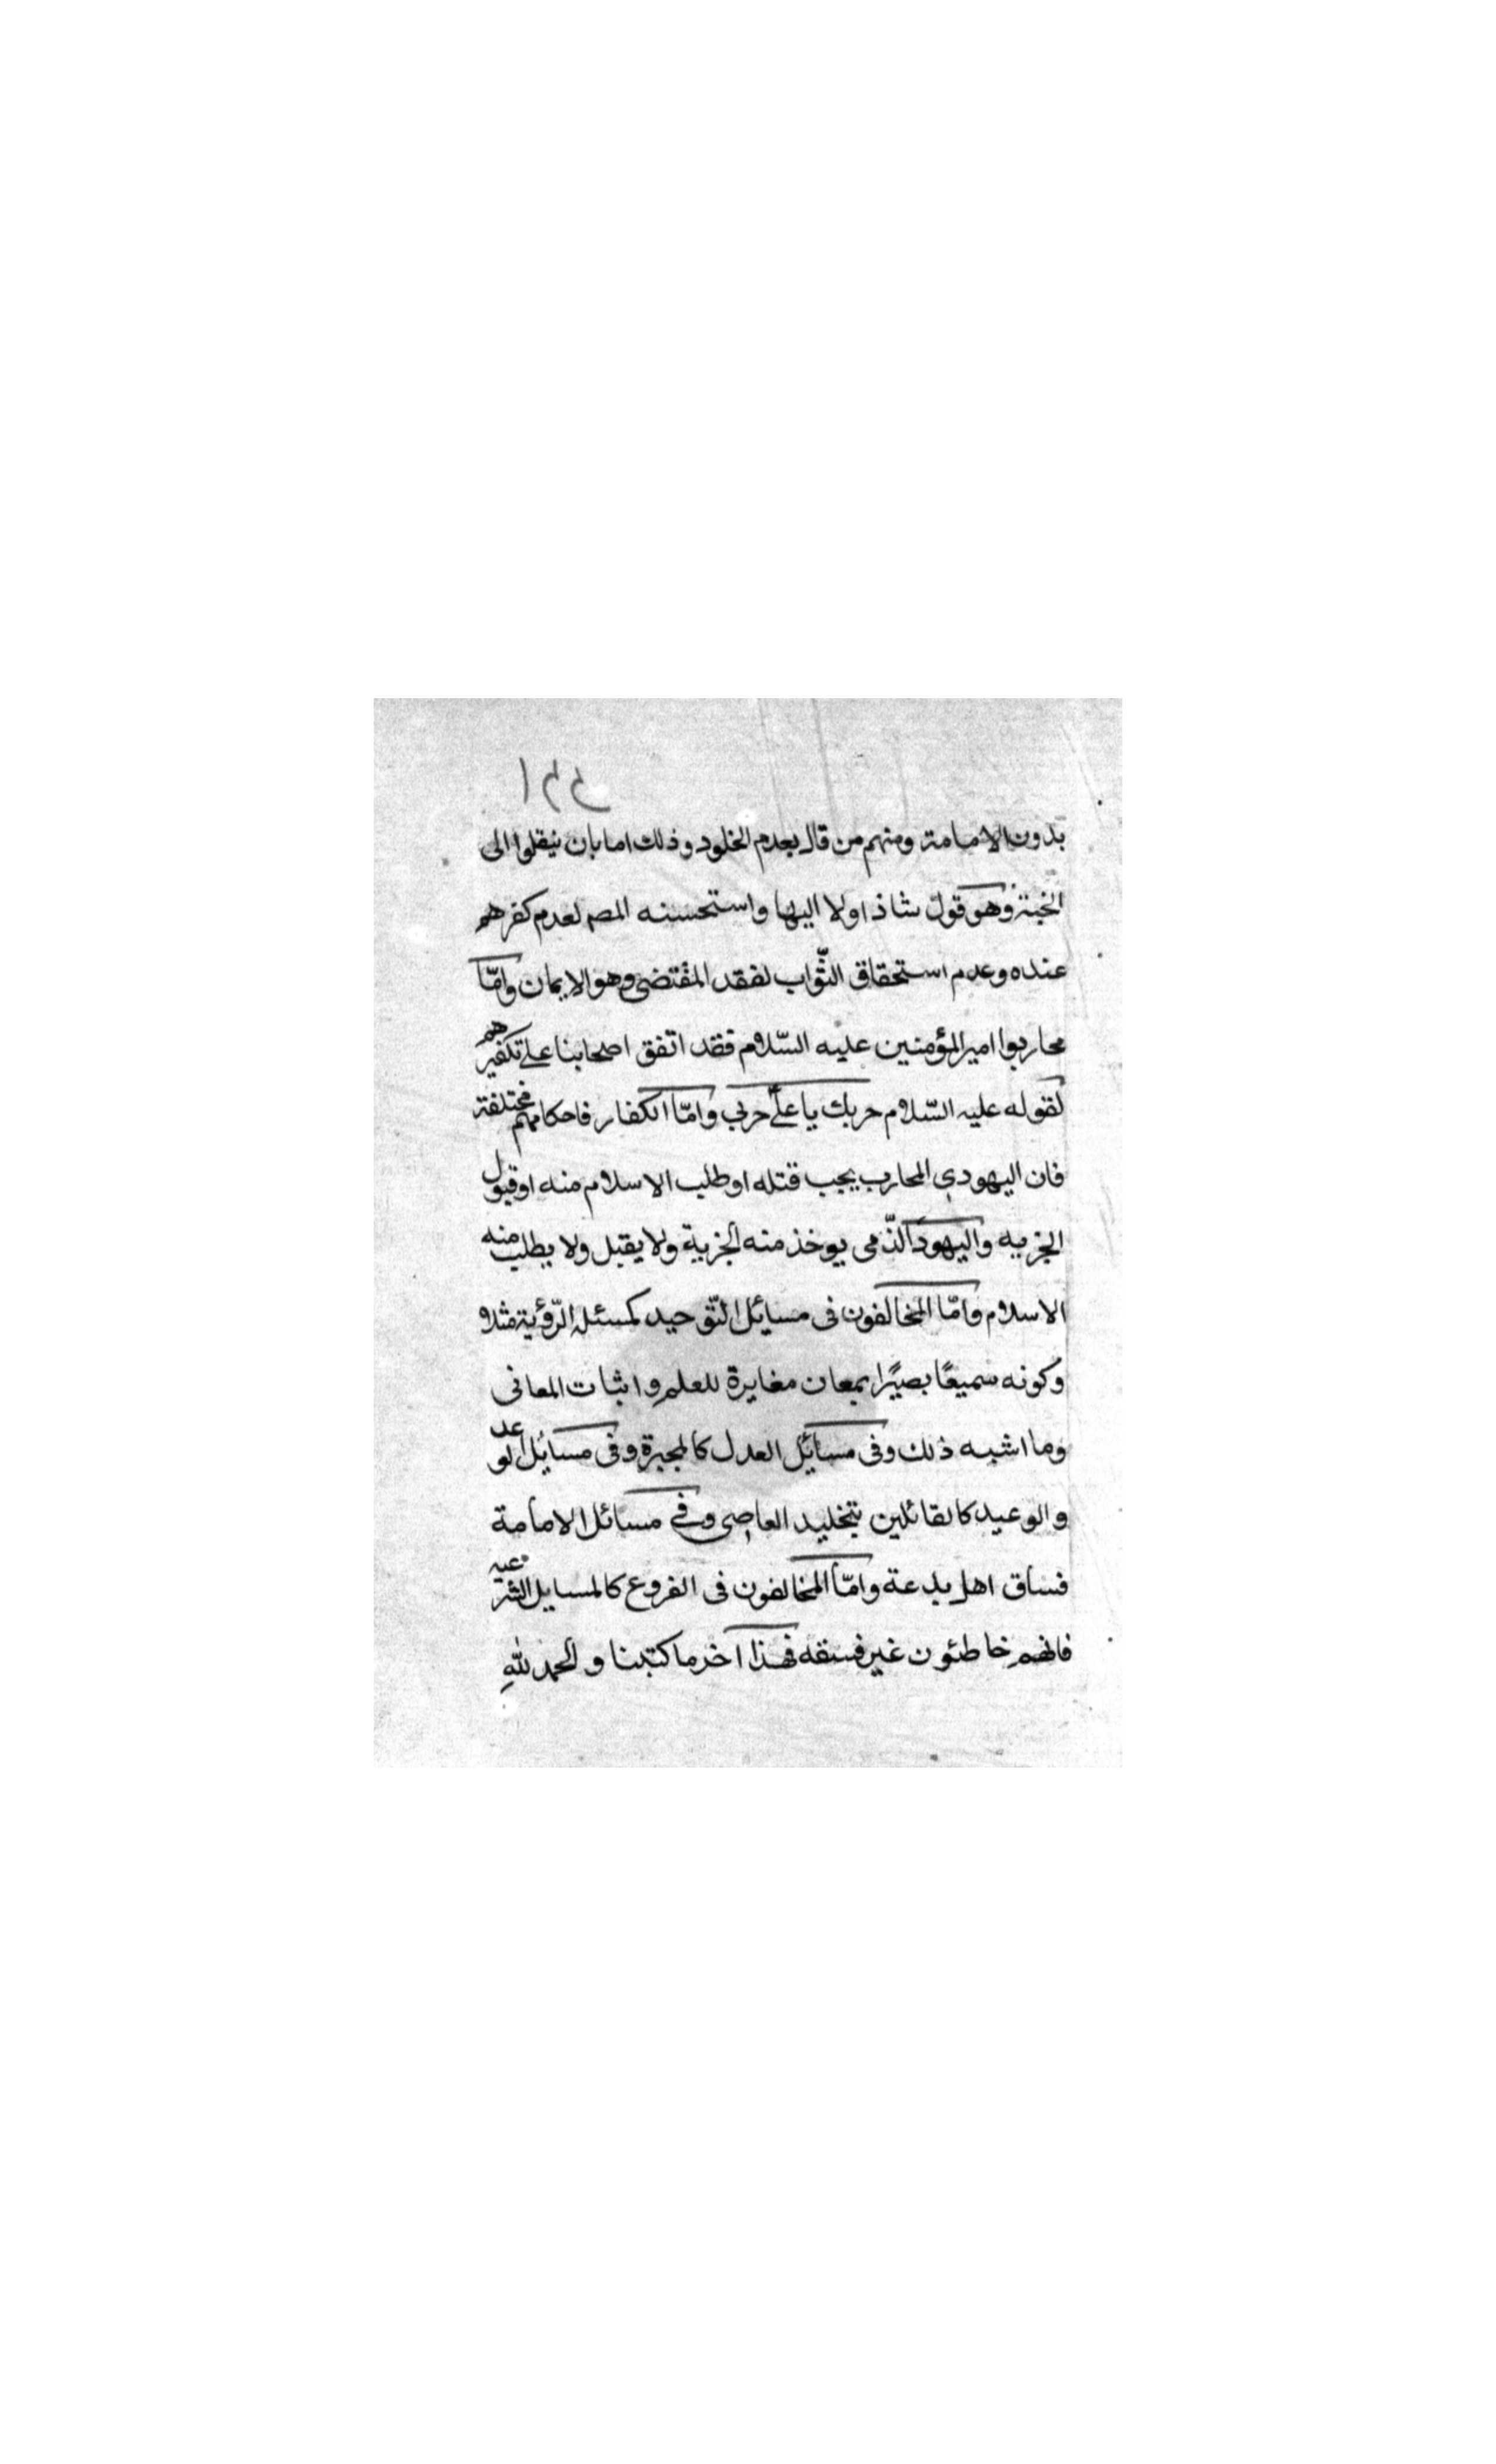 بدون الامامة ومنهم من قال بعدم الخلود وذلك اما بان ينقلوا الى
الجنة وهو قول شاذ اولا اليها واستحسنه المصم لعدم كفرهم
عنده وعدم استحقاق الثّواب لفقد المقتضى وهو الايمان وامّا
محاربوا امير المؤمنين عليه السّلام فقد اتفق اصحابنا على تكفيرهم
لقوله عليه السّلام حربك يا علىّ حربى وامّا الكفار فاحكامهم مختلفة
فان اليهودى المحارب يجب قتله او طلب الاسلام منه او قبول
الجزيه واليهود الذّمى يوخذ منه الجزية ولا يقتل ولا يطلب منه
الاسلام وامّا المخالفون فى مسايل التّوحيد كمسئلة الرّؤية مثلا
وكونه سميعًا بصيرًا بمعان مغايرة للعلم واثبات المعانى
وما اشبه ذلك وفى مسايل العدل كالمجبرة وفى مسايل الوعد
والوعيد كالقائلين بتخليد العاصى وفى مسائل الامامة
فساق اهل بدعة وامّا المخالفون فى الفروع كالمسايل الشرعيه
فانهم خاطئون غير فسقه فهذا آخر ما كتبنا والحمد للّه